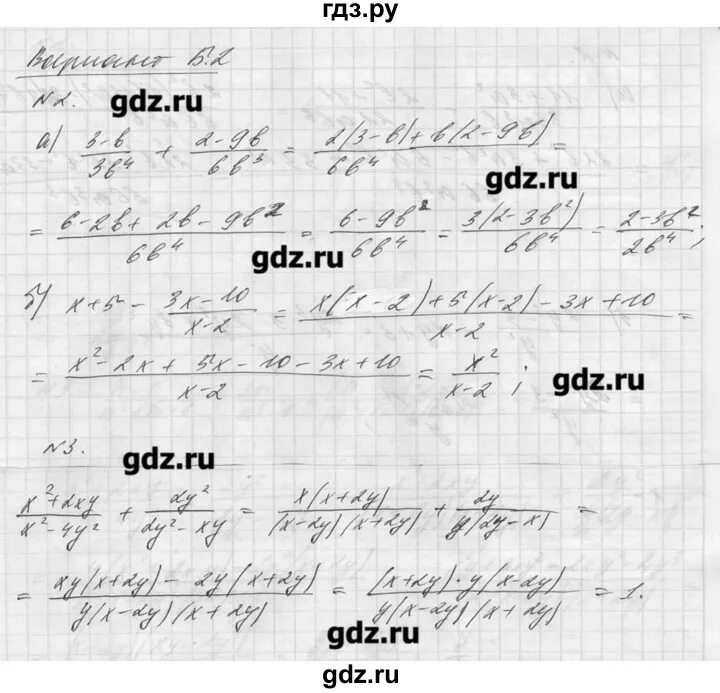 гдз.ру
Вариант Б.2
№2.
gdz.ru
а) (3-b)/(3b⁴) + (2-9b)/(6b³) = (2(3-b)+b(2-9b))/(6b⁴) =
gdz.ru
= (6-2b+2b-9b²)/(6b⁴) = (6-9b²)/(6b⁴) = (3(2-3b²))/(6b⁴) = (2-3b²)/(2b⁴);
gdz.ru
б) x+5 - (3x-10)/(x-2) = (x(x-2)+5(x-2)-3x+10)/(x-2) =
= (x²-2x+5x-10-3x+10)/(x-2) = x²/(x-2);
gdz.ru
№3.
gdz.ru
(x²+2xy)/(x²-4y²) + (2y²)/(2y²-xy) = (x(x+2y))/((x-2y)(x+2y)) + (2y)/(y(2y-x)) =
= (xy(x+2y)-2y(x+2y))/(y(x-2y)(x+2y)) = ((x+2y)·y(x-2y))/(y(x-2y)(x+2y)) = 1.
gdz.ru
gdz.ru